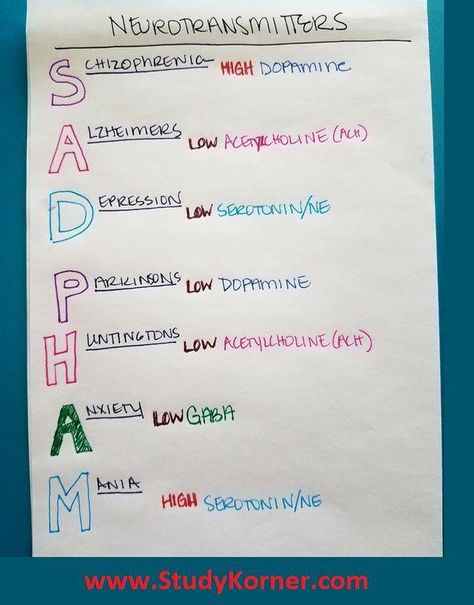 NEUROTRANSMITTERS
SCHIZOPHRENIA HIGH DOPAMINE
ALZHEIMERS LOW ACETYLCHOLINE (ACH)
DEPRESSION LOW SEROTONIN/NE
PARKINSONS LOW DOPAMINE
HUNTINGTONS LOW ACETYLCHOLINE (ACH)
ANXIETY LOW GABA
MANIA HIGH SEROTONIN/NE
www.StudyKorner.com